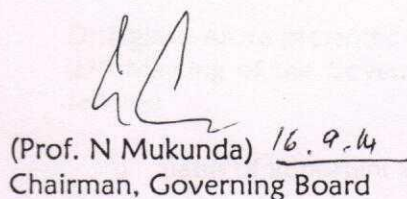 (Prof. N Mukunda) 16.9.14
Chairman, Governing Board